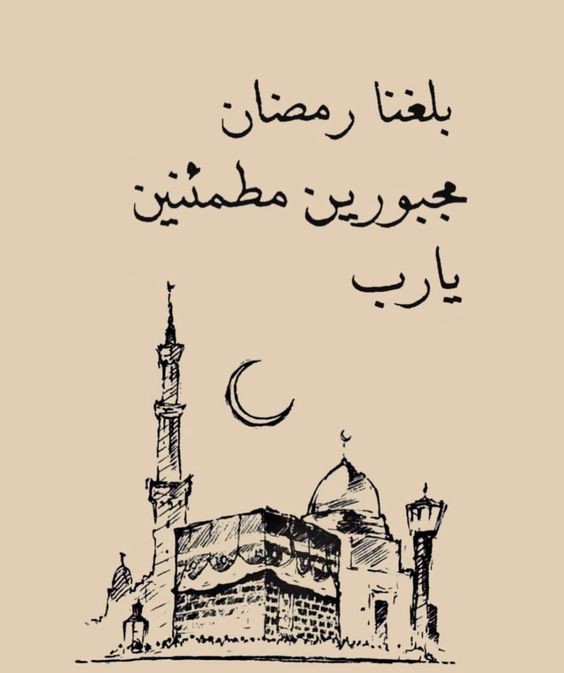 بلغنا رمضان
مجبورين مطمئنين
يارب